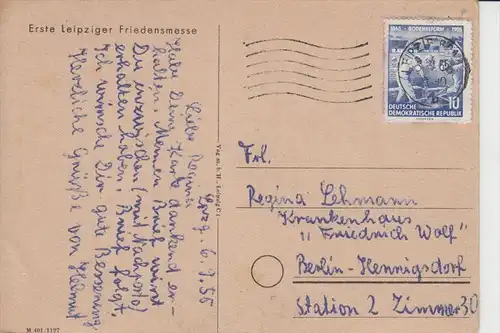 Erste Leipziger Friedensmesse
Lpzg. 6.9.55
Liebe Regina
Habe Deine Karte dankend er-
halten. Meinen Brief wirst
Du inzwischen (mit Nachporto)
erhalten haben. Brief folgt.
Ich wünsche Dir gute Besserung
Herzliche Grüße von Helmut
M 401/1127
1945 · BODENREFORM · 1955
10
DEUTSCHE
DEMOKRATISCHE REPUBLIK
LEIPZIG
Frl.
Regina Lehmann
Krankenhaus
"Friedrich Wolf"
Berlin-Hennigsdorf
Station 2 Zimmer 30